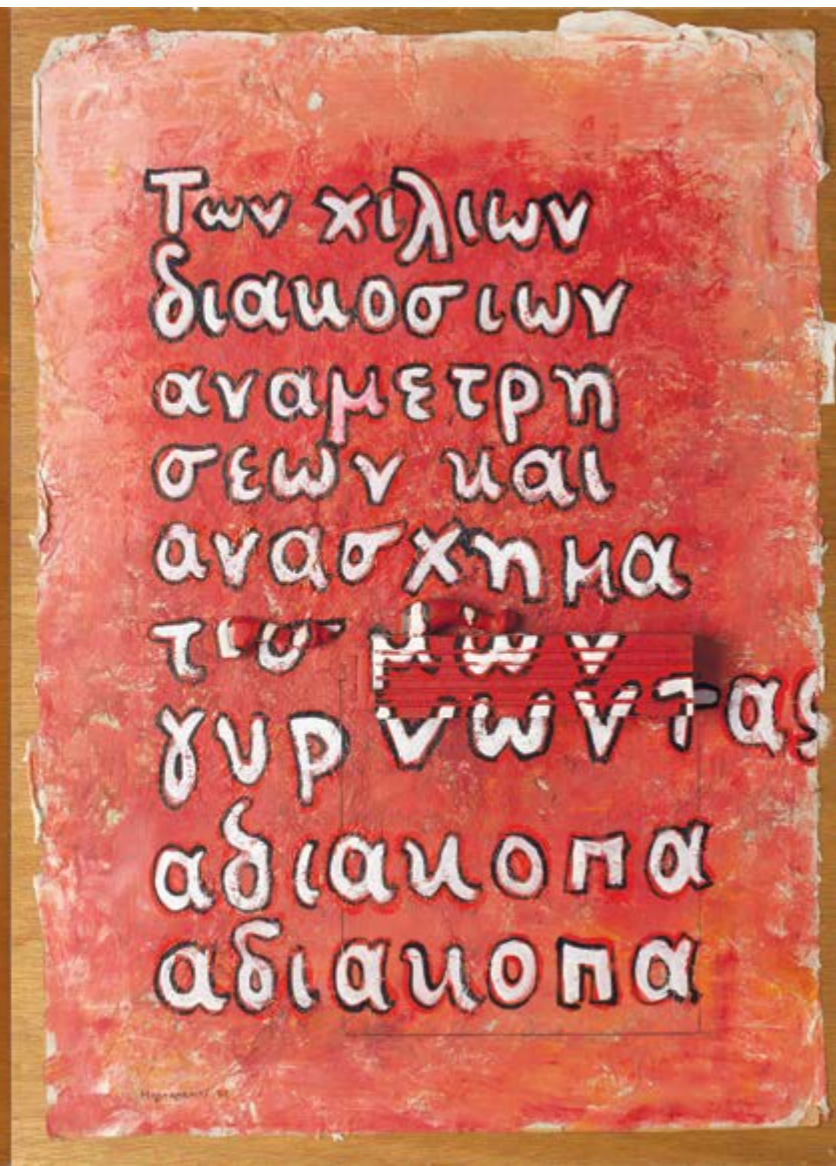 Των χιλιων
διακοσιων
αναμετρη
σεων και
ανασχημα
τισ μων
γυρ νωντας
αδιακοπα
αδιακοπα